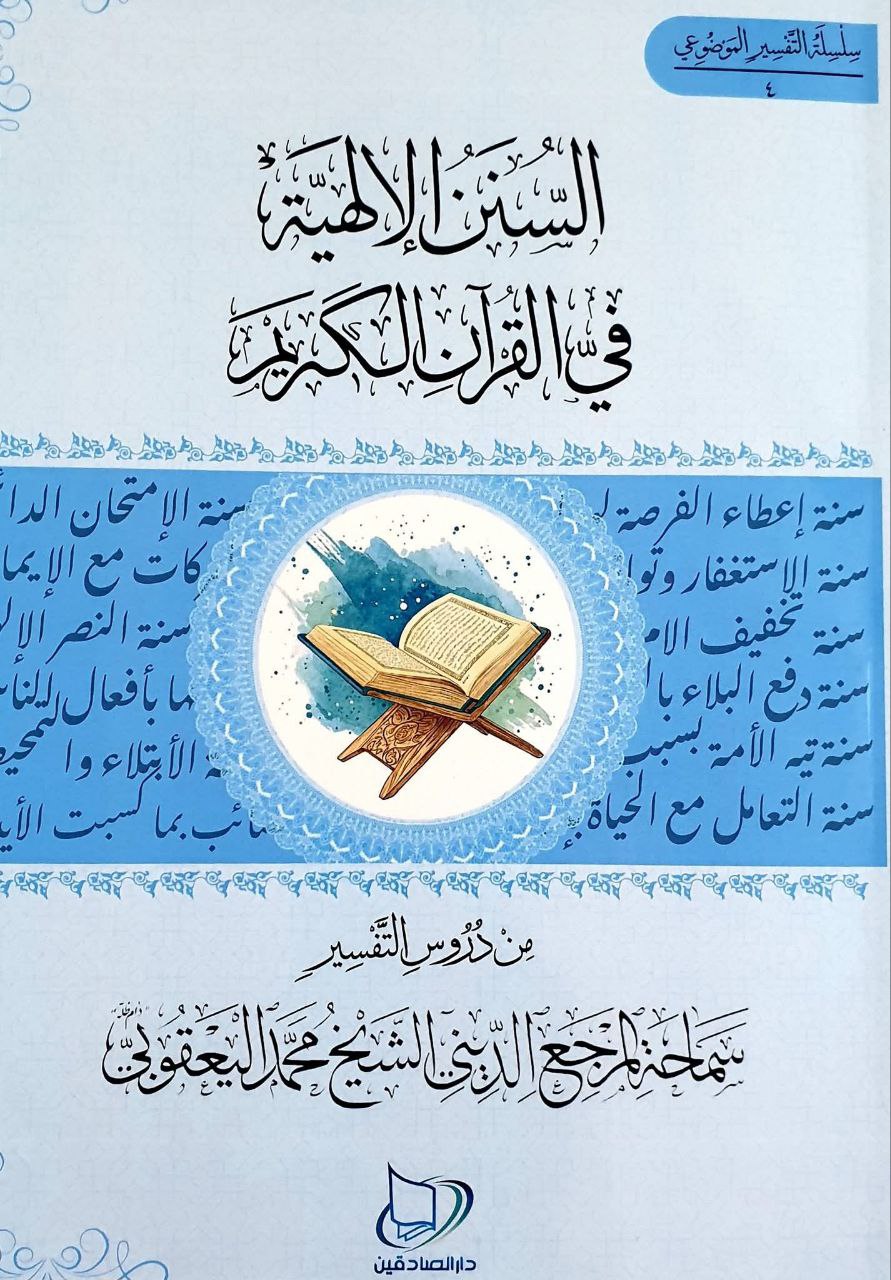 سِلْسِلَةُ التَّفْسِيرِ المَوْضُوعِي
٤
السُّنَنُ الإلٰهِيَّةُ
فِي القُرْآنِ الكَرِيمِ
سنة إعطاء الفرصة سنة الإمتحان
سنة الإستغفار مع
سنة تخفيف سنة النصر
سنة دفع البلاء بأفعال
سنة تيه الأمة بسبب الأبتلاء
سنة التعامل مع الحياة بما كسبت
مِنْ دُرُوسِ التَّفْسِيرِ
سَمَاحَةِ المَرْجِعِ الدِّينِيِّ الشَّيْخِ مُحَمَّدٍ اليَعْقُوبِيِّ "دام ظله"
دار الصادقين